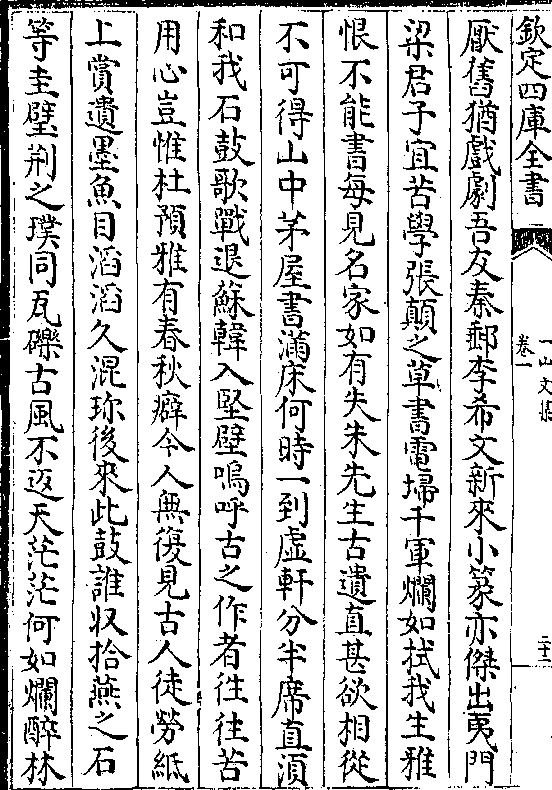 欽定四庫全書
一山文集
卷一
二十二
厭舊猶戲劇吾友秦郵李希文新來小篆亦傑出夷門
梁君子宜苦學張顛之草書電埽千軍爛如拭我生雅
恨不能書每見名家如有失朱先生古遺直甚欲相從
不可得山中茅屋書滿床何時一到虛軒分半席直湏
和我石鼓歌戰退蘇韓入堅壁嗚呼古之作者往往苦
用心豈惟杜預雅有春秋癖今人無復見古人徒勞紙
上賞遺墨魚目滔滔久混珎後來此鼓誰収拾燕之石
等圭璧荆之璞同瓦礫古風不返天茫茫何如爛醉林